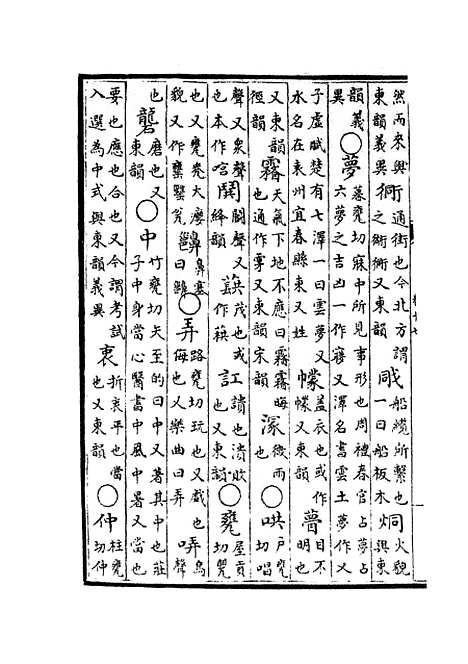 然而來與東韻義異衕通街也今北方謂之衕衕又東韻𦨴船纜所繫也一曰船板木烔火貌與東
韻義異○夢蒙甕切寐中所見事形也周禮春官占夢占六夢之吉凶一作寢又澤名書雲土夢作乂
子虛賦楚有七澤一曰雲夢又水名在袁州宜春縣東又姓幪蓋衣也或作㡓又東韻瞢目不明也
又東韻徑韻霿天氣下地不應曰霿霿晦也通作雺又東韻宋韻濛微雨也○哄戶甕切唱
聲又衆聲也本作唅鬨鬬聲又絳韻蕻茂也或作葓訌讀也潰敗也又東韻○甕屋貢切罌
也又甕㼜大麼貌又作罋甖瓮齆鼻塞曰齆○弄路甕切玩也又戲也侮也又樂曲曰弄哢鳥聲
也礱磨也又東韻○中竹甕切矢至的曰中又著其中也莊子中身當心醫書中風中暑又當也
要也應也合也又今謂考試入選為中式與東韻義異衷折衷平也當也又東韻○仲柱甕切仲